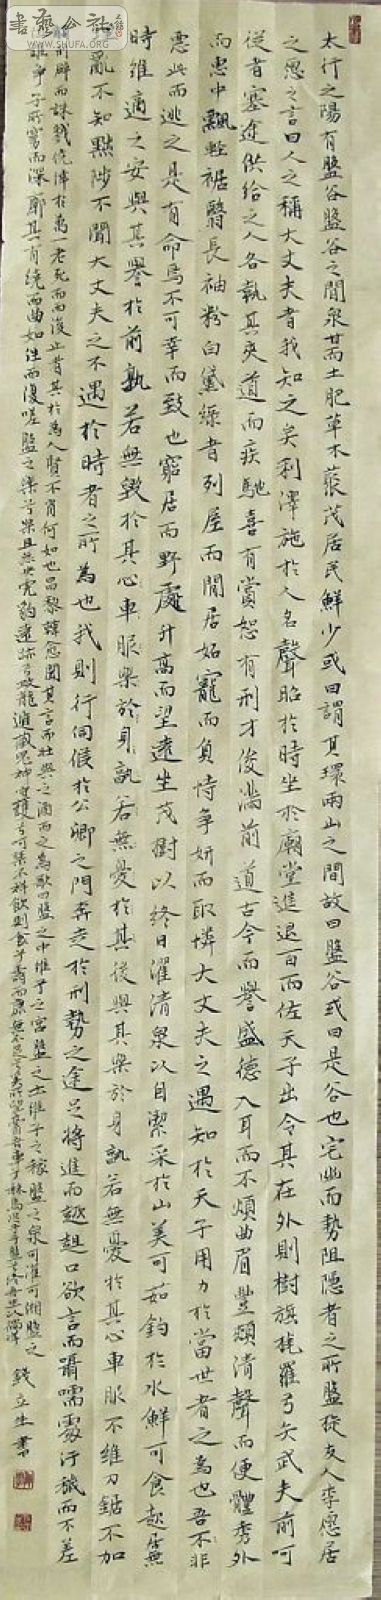 書藝公社
WWW.SHUFA.ORG
太行之陽有盤谷盤谷之間泉甘而土肥草木蓊茂居民鮮少或曰謂其環兩山之間故曰盤谷或曰是谷也宅幽而勢阻隱者之所盤旋友人李愿居
之愿之言曰人之稱大丈夫者我知之矣利澤施於人名聲昭於時坐於廟堂進退百而佐天子出令其在外則樹旗旄羅弓矢武夫前呵
從者塞途供給之人各執其夾道而疾馳喜有賞怒有刑才俊滿前道古今而譽盛德入耳而不煩曲眉豐頰清聲而便體秀外
而惠中飄輕裾翳長袖粉白黛綠者列屋而閒居妬寵而負恃爭妍而取憐大丈夫之遇知於天子用力於當世者之為也吾不非
惡此而逃之是有命焉不可幸而致也窮居而野處升高而望遠坐茂樹以終日濯清泉以自潔采於山美可茹釣於水鮮可食起居無
時維適之安與其譽於前孰若無毀於其心車服樂於身孰若無憂於其後與其樂於身孰若無憂於其心車服不維刀鋸不加
亂不知黜陟不聞大丈夫之不遇於時者之所為也我則行伺候於公卿之門奔走於形勢之途足將進而趑趄口欲言而囁嚅處汙穢而不羞
刑辟而誅戮僥倖於萬一老死而後止者其於為人賢不肖何如也昌黎韓愈聞其言而壯與之酒而之為歌曰盤之中維子之宮盤之土維子之稼盤之泉可濯可湘盤之
誰爭子所窈而深廓其有繞而曲如往而復嗟盤之樂兮樂且無央虎豹遠跡兮蛟龍遁藏鬼神守護兮
錢立生書